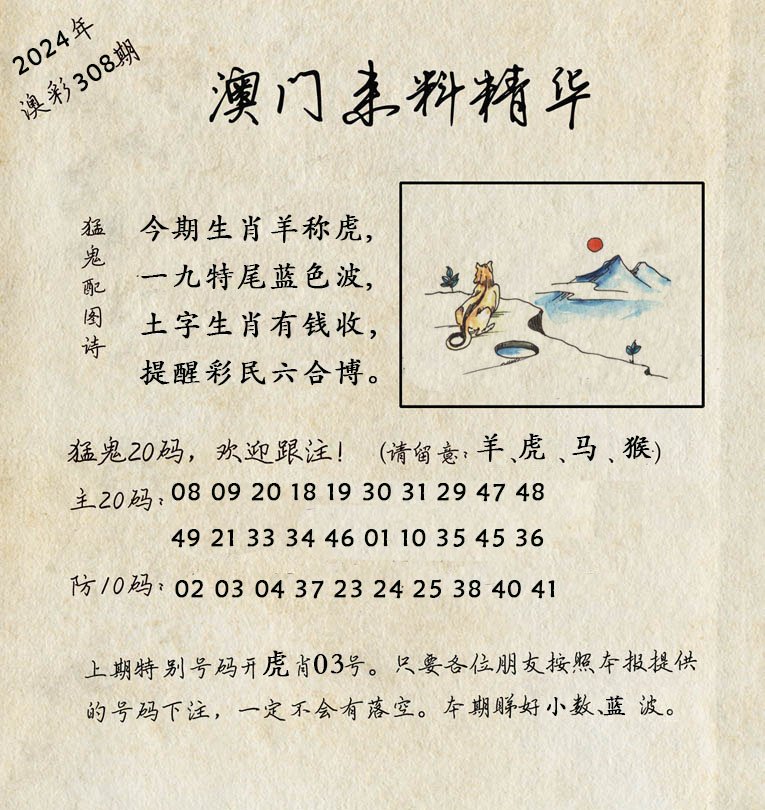 2024年
澳彩308期
澳门来料精华
猛鬼配图诗
今期生肖羊称虎，
一九特尾蓝色波，
土字生肖有钱收，
提醒彩民六合博。
猛鬼20码，欢迎跟注！（请留意：羊、虎、马、猴）
主20码：08 09 20 18 19 30 31 29 47 48
49 21 33 34 46 01 10 35 45 36
防10码：02 03 04 37 23 24 25 38 40 41
上期特别号码开虎肖03号。只要各位朋友按照本报提供
的号码下注，一定不会有落空。本期睇好小数、蓝 波。